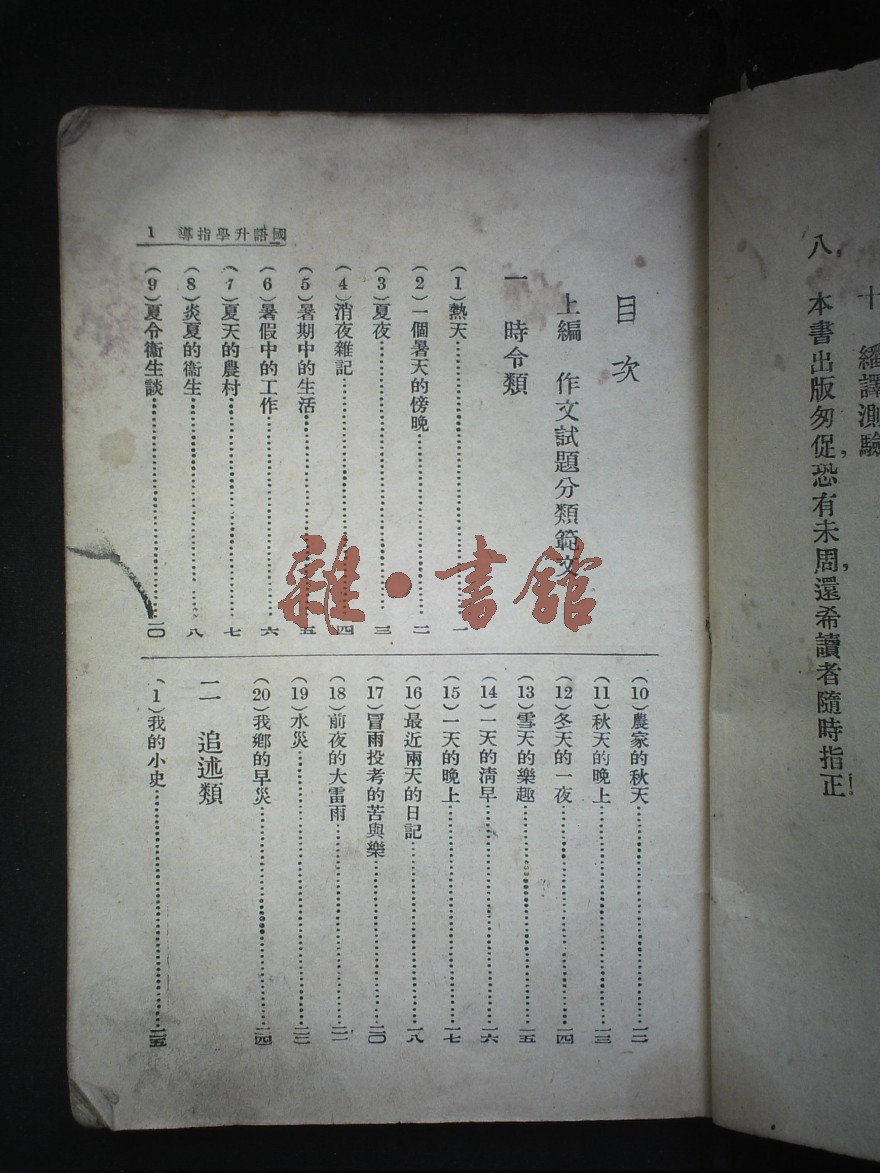 十 繙譯測驗
八，本書出版匆促，恐有未周，還希讀者隨時指正！
國語升學指導 1
目次
上編 作文試題分類範文
一 時令類
(1)熱天……一
(2)一個暑天的傍晚……二
(3)夏夜……三
(4)消夜雜記……四
(5)暑期中的生活……五
(6)暑假中的工作……六
(7)夏天的農村……七
(8)炎夏的衞生……八
(9)夏令衞生談……一〇
(10)農家的秋天……一二
(11)秋天的晚上……一三
(12)冬天的一夜……一四
(13)雪天的樂趣……一五
(14)一天的清早……一六
(15)一天的晚上……一七
(16)最近兩天的日記……一八
(17)冒雨投考的苦與樂……二〇
(18)前夜的大雷雨……二一
(19)水災……
(20)我鄉的旱災……二四
二 追述類
(1)我的小史……二五
雜·書館